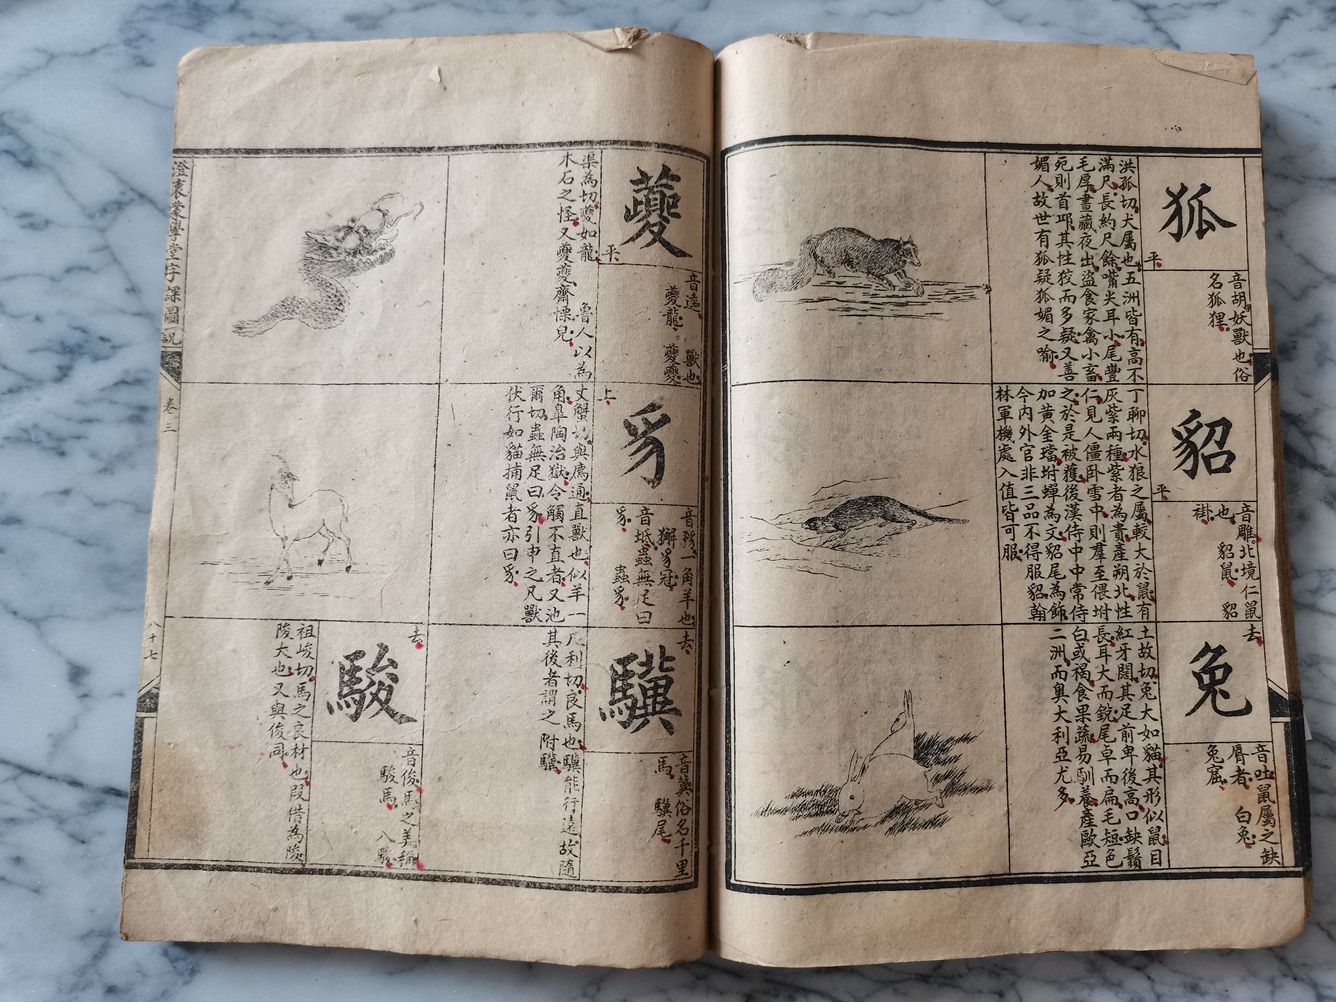 狐
平
音胡。妖獸也。俗
名狐狸。
洪孤切。犬屬也。五洲皆有。高不
滿尺。長約尺餘。嘴尖耳小。尾豐
毛厚。晝藏夜出。盜食家禽小畜。
死則首邱。其性狡而多疑。又善
媚人。故世有狐疑狐媚之喻。
貂
平
音雕。北境仁鼠
也。貂鼠。貂
褂。
丁聊切。水狼之屬。較大於鼠。有
灰紫兩種。紫者為貴。產朔北。性
仁。見人僵卧雪中。則羣至偎坿
之。於是被獲。後漢侍中中常侍
加黃金璫。坿蟬為文。貂尾為飾。
今內外官非三品不得服貂。翰
林軍機處入值皆可服。
兔
去
音吐。鼠屬之缺
脣者。白兔。
兔窟。
土故切。兔大如貓。其形似鼠。目
紅牙闊。其足前卑後高。口缺鬚
長。耳大而銳。尾卓而扁。毛短。色
白或褐。食果蔬。易馴養。產歐亞
二洲。而奧大利亞尤多。
夔
平
音逵。獸也。
夔龍。夔夔。
渠為切。夔如龍。魯人以為
木石之怪。又夔夔。齋慄皃。
豸
上
音豸。一角羊也。
獬豸冠。
音坻。蟲無足曰
豸。蟲豸。
丈蟹切。與廌通。直獸也。似羊一
角。皐陶治獄。令觸不直者。又池
爾切。蟲無足曰豸。引申之凡獸
伏行如貓捕鼠者亦曰豸。
驥
去
音冀。俗名千里
馬。驥尾。
几利切。良馬也。驥能行遠。故隨
其後者謂之附驥。
駿
去
音俊。馬之美稱。
駿馬。八駿。
祖峻切。馬之良材也。叚借為陵。
陵大也。又與俊同。
澄衷蒙學堂字課圖說
卷三
八十七